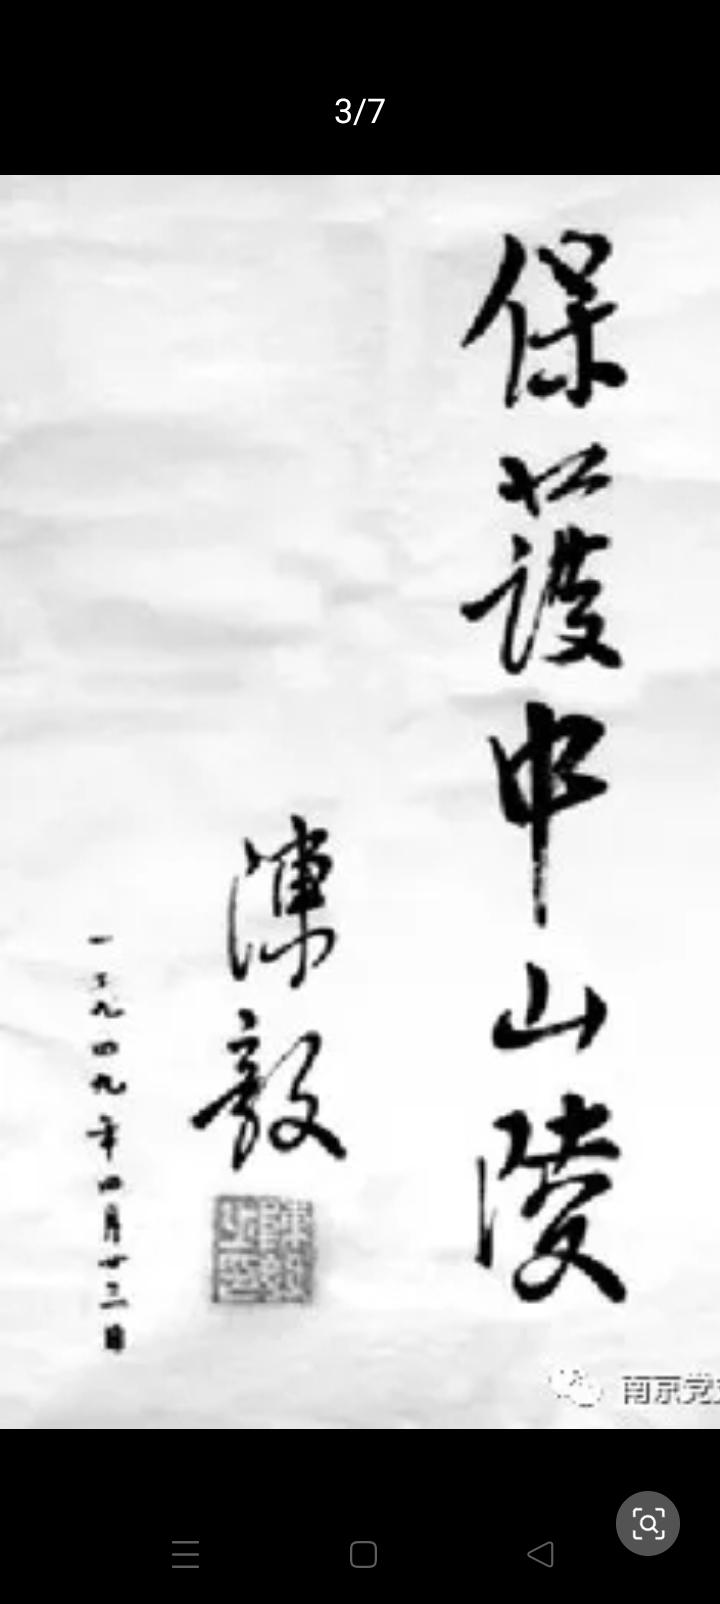 3/7
保護中山陵
陳毅
一九四九年四月廿三日
南京党